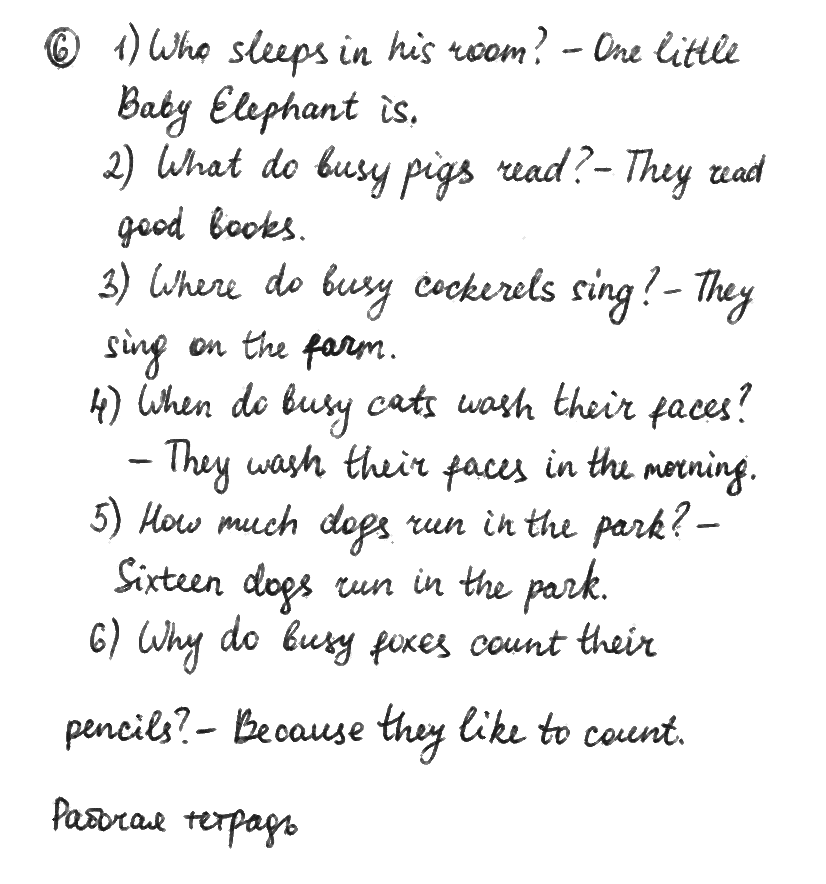 ⑥ 1) Who sleeps in his room? – One little
Baby Elephant is.
2) What do busy pigs read? – They read
good books.
3) Where do busy cockerels sing? – They
sing on the farm.
4) When do busy cats wash their faces?
– They wash their faces in the morning.
5) How much dogs run in the park? –
Sixteen dogs run in the park.
6) Why do busy foxes count their
pencils? – Because they like to count.
Рабочая тетрадь